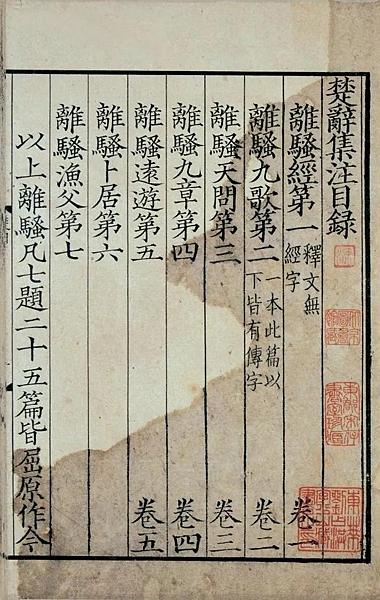 楚辭集注目録
離騷經第一 釋文無
經字 卷一
離騷九歌第二 一本此篇以
下皆有傳字 卷二
離騷天問第三 卷三
離騷九章第四 卷四
離騷遠遊第五 卷五
離騷卜居第六
離騷漁父第七
以上離騷凡七題二十五篇皆屈原作今